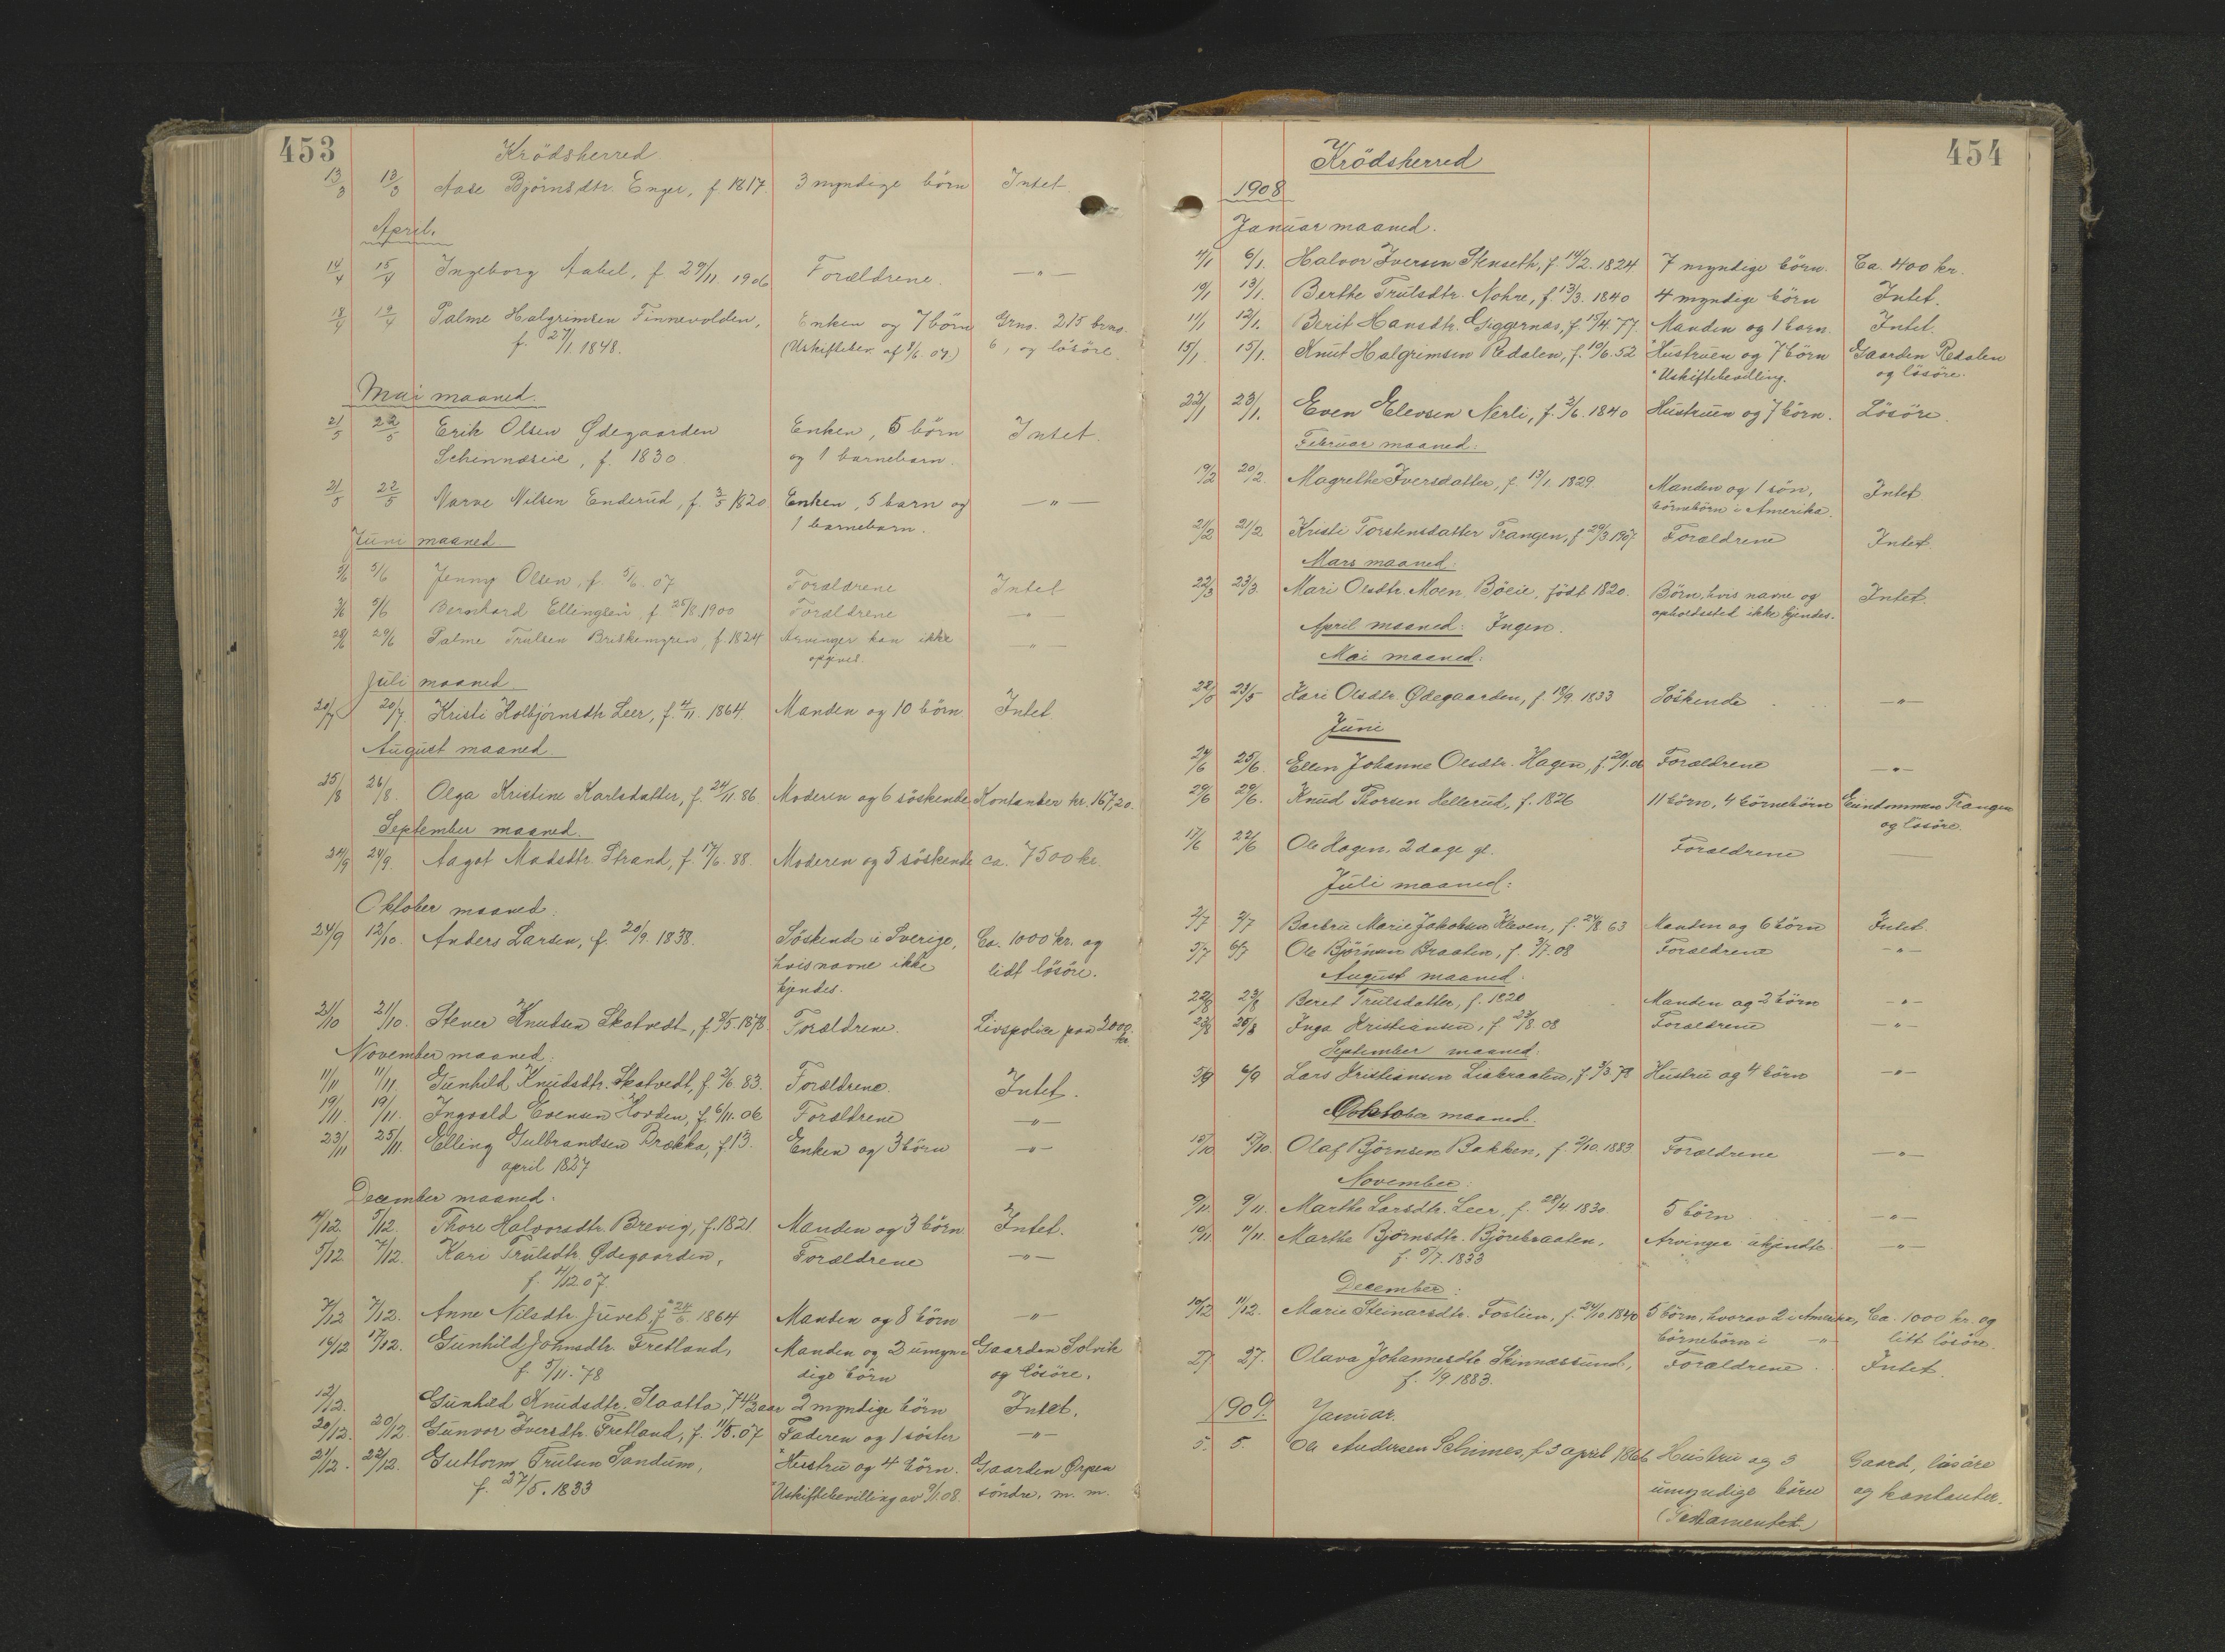 453
Krödsherred
13/3 13/3 Aase Björnsdtr. Enger, f 1817. 3 myndige börn Intet.
April.
14/4 15/4 Ingeborg Aabel, f. 29/11. 1906 Forældrene. — " —
18/4 19/4 Palme Halgrimsen Finnevolden, Enken og 7 börn Grno. 215 brno.
f. 27/1 1848. (Uskiftebev. af 8/6. 07) 6, og lösöre.
Mai maaned.
21/5 22/5 Erik Olsen Ødegaarden Enken, 5 börn Intet.
f. 1830 og 1 barnebarn.
21/5 22/5 Narve Nilsen Enderud, f. 3/5 1820 Enken, 5 barn og — " —
1 barnebarn.
Juni maaned
5/6 5/6 Jenny Olsen, f. 5/6. 07 Forældrene Intet
3/6 5/6 Bernhard Ellingsen, f 25/8.1900 Forældrene — " —
28/6 29/6 Palme Trulsen Briskemyren, f. 1824 Arvinger kan ikke — " —
opgives.
Juli maaned
20/7 20/7 Kristi Kolbjörnsdtr Leer, f. 4/11. 1864. Manden og 10 börn Intet
August maaned.
25/8 26/8. Olga Kristine Karlsdatter, f. 24/11. 86 Moderen og 6 söskende Kontanter kr. 167,20.
September maaned.
24/9 24/9. Aagot Madsdtr. Strand, f. 17/6. 88. Moderen og 5 söskende ca. 7500 kr.
Oktober maaned.
24/9 12/10. Anders Larsen, f. 20/9. 1838. Söskende i Sverige, Ca. 1000 kr. og
hvis navne ikke lidt lösöre.
kjendes.
21/10 21/10. Stener Knudsen Skatvedt, f. 8/5. 1878 Forældrene. Livspolice paa 2000.
kr.
November maaned.
11/11 11/11. Gunhild Knudsdtr. Skatvedt, f. 2/6. 83. Forældrene. Intet.
19/11. 19/11. Ingvald Evensen Hovden, f. 6/11. 06 Forældrene — " —
23/11 25/11. Elling Gulbrandsen Brække, f. 13. Enken og 3 börn — " —
april 1827
December maaned.
4/12. 5/12. Thore Halvorsdtr. Brevig, f. 1821 Manden og 3 börn Intet.
5/12. 7/12. Kari Trulsdtr Ødegaarden, Forældrene — " —
f. 4/12.07.
7/12 7/12. Anne Nilsdtr. Juvet, f. 24/6. 1864 Manden og 8 börn — " —
16/12 17/12. Gunhild Johnsdtr. Fretland, Manden og 2 umyn= Gaarden Solvik
f. 5/11. 78 dige börn og lösöre.
12/12. Gunhild Knudsdtr. Slaatta, 74 1/2 aar 2 myndige börn Intet.
20/12. 20/12. Gunvor Iversdtr. Fretland, f. 11/5. 07 Faderen og 1 söster — " —
21/12. 22/12. Guttorm Trulsen Sandum, Hustru og 4 börn. Gaarden Ørpen
f. 27/5. 1833 Uskiftebevilling av 9/1.08. söndre, m. m.
454
Krödsherred
1908
Januar maaned.
4/1 6/1. Halvor Iversen Stenseth, f 14/2. 1824 7 myndige börn. Ca. 400 kr.
10/1 13/1. Berthe Trulsdtr. Nohre, f. 13/3. 1840 4 myndige börn Intet.
11/1 12/1. Berit Hansdtr. Giggernæs, f. 15/4. 77. Manden og 1 barn. Intet.
15/1 15/1. Knut Halgrimsen Redalen, f. 10/6. 52 Hustruen og 7 börn Gaarden Redalen
Uskiftebevilling. og lösöre.
22/1 23/1. Even Elevsen Nerli, f. 2/6. 1840 Hustruen og 7 börn. Lösöre.
Februar maaned.
19/2 20/2. Magrethe Iversdatter, f. 13/1. 1829. Manden og 1 sön, Intet
börnebörn i Amerika.
21/2 21/2 Kristi Torstensdatter Trangen, f 29/3. 1907 Forældrene Intet
Mars maaned.
22/3 23/3. Mari Olsdtr. Moen, Böeie, födt 1820. Börn, hvis navne og Intet.
opholdssted ikke kjendes.
April maaned: Ingen.
Mai maaned:
22/5 23/5 Kari Olsdtr. Ødegaarden, f. 18/9. 1833 Söskende — " —
Juni
24/6 25/6. Ellen Johanne Olsdtr. Hagen, f. 20/1.06 Forældrene — " —
29/6 29/6. Knud Thorsen Hellerud, f. 1826 11 börn, 4 börnebörn Eiendommen Trangen
og lösöre.
17/6 22/6 Ole Hagen, 2 dage gl. Forældrene —
Juli maaned:
2/7 2/7 Barbru Marie Jakobsen Kleven, f. 24/8 63 Manden og 6 börn Intet
5/7 6/7 Ole Björnsen Braaten, f. 3/7. 08 Forældrene — " —
August maaned.
22/8 23/8 Beret Trulsdatter, f. 1820 Manden og 2 börn — " —
23/8 25/8 Inga Kristiansen, f 23/8. 08 Forældrene — " —
September maaned.
5/9 6/9 Lars Kristiansen Liabraaten, f. 3/3. 72 Hustru og 4 börn — " —
Oktober maaned.
15/10 17/10. Olaf Björnsen Bakken, f. 2/10. 1883 Forældrene — " —
November:
9/11. 9/11. Marthe Larsdtr. Leer, f. 28/4. 1830. 5 börn — " —
10/11 11/11. Marthe Björnsdtr. Björebraaten, Arvinger ukjendte. — " —
f. 5/7. 1833
December:
10/12 11/12. Marie Steinarsdtr. Foslien, f. 24/10. 1840 5 börn, hvorav 2 i Amerika, Ca. 1000 kr. og
börnebörn i — " — litt lösöre.
27 27. Olava Johannesdtr Skinnessund, Forældrene. Intet.
f. 1/9. 1883.
1909. Januar.
5. 5. Ole Andersen f 3 april 1866 Hustru og 3 Gaard, lösöre
umyndige börn og kontanter.
(Testamentet.)